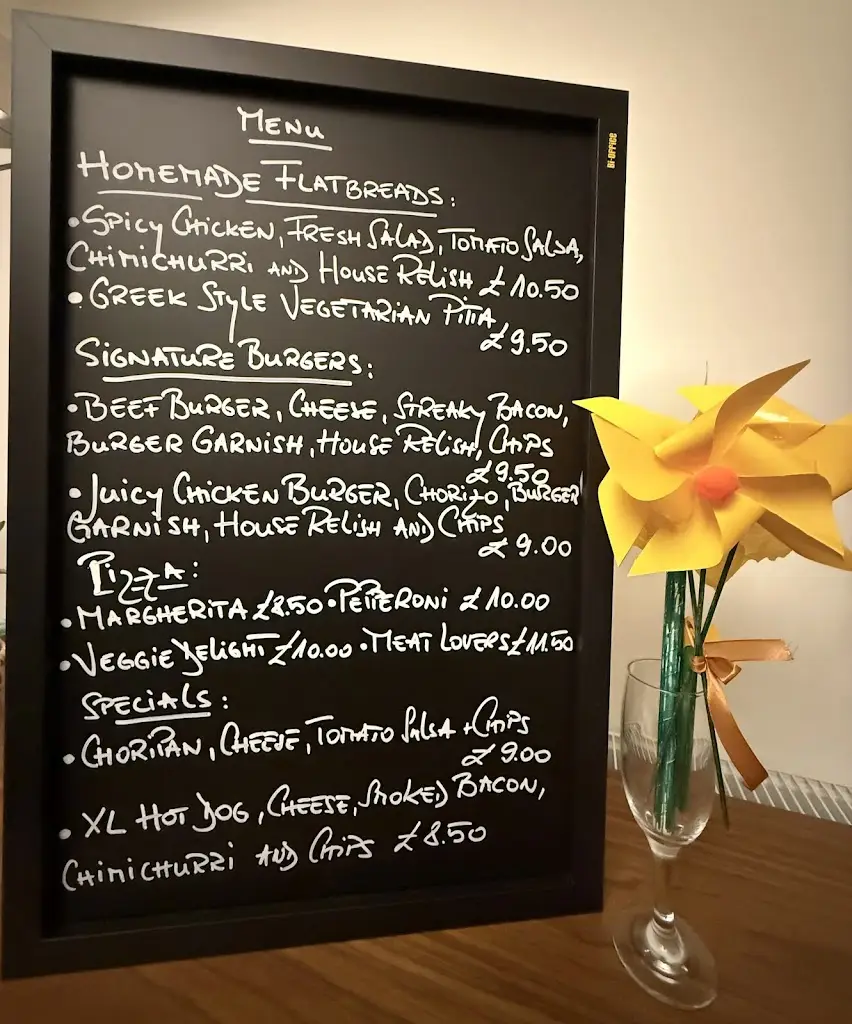 BI-OFFICE
MENU
HOMEMADE FLATBREADS:
• SPICY CHICKEN, FRESH SALAD, TOMATO SALSA,
CHIMICHURRI AND HOUSE RELISH £10.50
• GREEK STYLE VEGETARIAN PITTA
£9.50
SIGNATURE BURGERS:
• BEEF BURGER, CHEESE, STREAKY BACON,
BURGER GARNISH, HOUSE RELISH, CHIPS
£9.50
• JUICY CHICKEN BURGER, CHORIZO, BURGER
GARNISH, HOUSE RELISH AND CHIPS
£9.00
PIZZA:
• MARGHERITA £8.50 • PEPPERONI £10.00
• VEGGIE DELIGHT £10.00 • MEAT LOVERS £11.50
SPECIALS:
• CHORIPAN, CHEESE, TOMATO SALSA + CHIPS
£9.00
• XL HOT DOG, CHEESE, SMOKED BACON,
CHIMICHURRI AND CHIPS £8.50